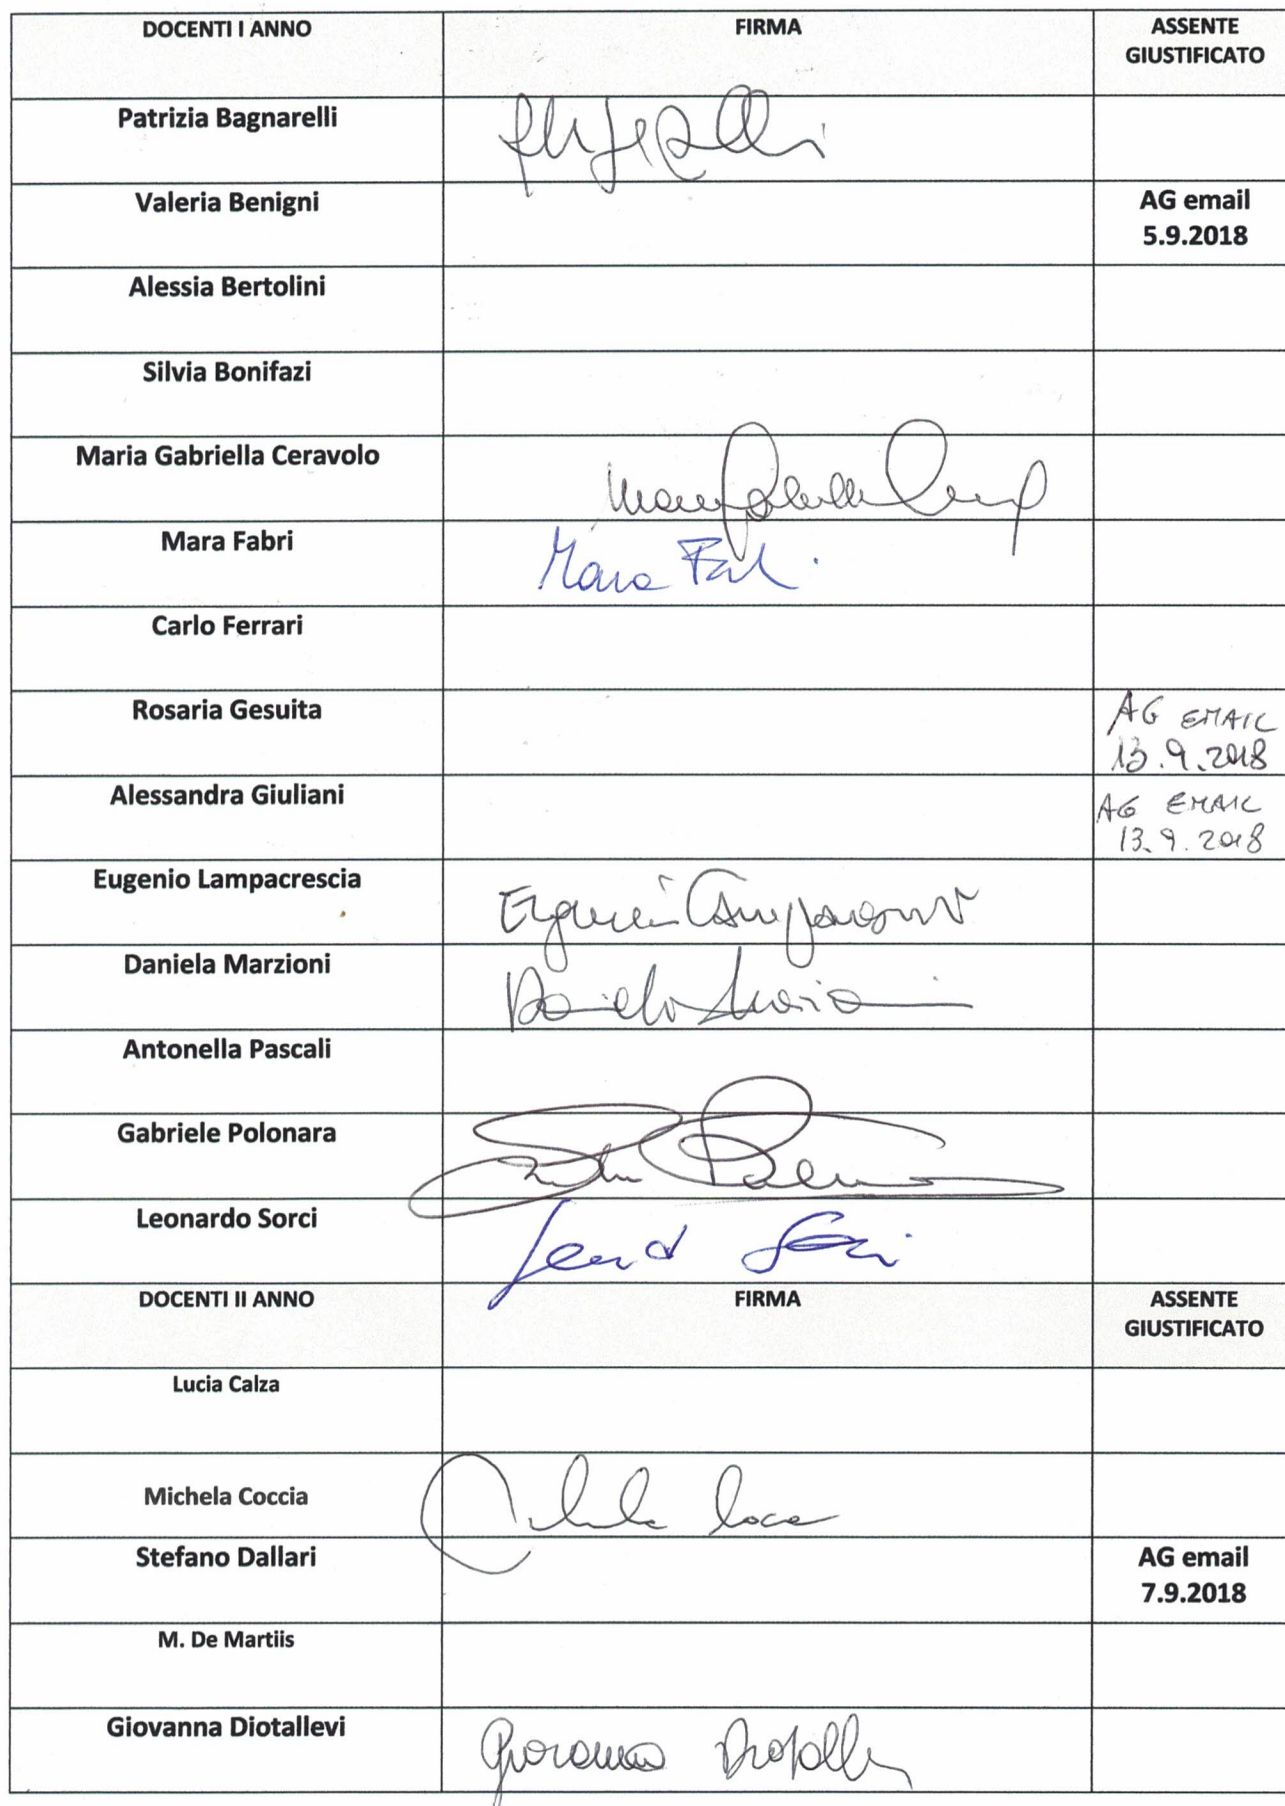 DOCENTI I ANNO FIRMA ASSENTE
GIUSTIFICATO
Patrizia Bagnarelli
Valeria Benigni AG email
5.9.2018
Alessia Bertolini
Silvia Bonifazi
Maria Gabriella Ceravolo
Mara Fabri Mara
Carlo Ferrari
Rosaria Gesuita AG EMAIL
13.9.2018
Alessandra Giuliani AG EMAIL
13.9.2018
Eugenio Lampacrescia
Daniela Marzioni
Antonella Pascali
Gabriele Polonara
Leonardo Sorci
DOCENTI II ANNO FIRMA ASSENTE
GIUSTIFICATO
Lucia Calza
Michela Coccia
Stefano Dallari AG email
7.9.2018
M. De Martiis
Giovanna Diotallevi Giovanna